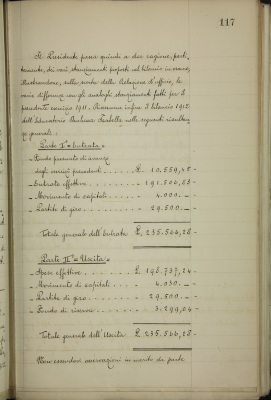 117
Il Presidente passa quindi a dar ragione, parti-
tamente, dei varii stanziamenti proposti nel bilancio in esame,
illustrandone, sulla scorta della Relazione d'ufficio, le
varie differenze con gli analoghi stanziamenti fatti per il
precedente esercizio 1911. Riassume infine il bilancio 1912
dell' nelle seguenti risultan-
ze generali:
Parte Iª = Entrata =
- Fondo presunto di avanzo
degli esercizi precedenti . . . £. 10.559,45 -
- Entrate effettive . . . . . . . . " 191.506,83 -
- Movimento di capitali . . . . " 4.000. - -
- Partite di giro . . . . . . . . . " 29.500. - -
Totale generale dell'Entrata £. 235.566,28 -
Parte IIª = Uscita =
- Spese effettive . . . . . . . . . £. 198.737,24 -
- Movimento di capitali . . . . " 4.030. - -
- Partite di giro . . . . . . . . . " 29.500. - -
- Fondo di riserva . . . . . . . " 3.299,04 -
Totale generale dell'Uscita £. 235.566,28 -
Non essendovi osservazioni in merito da parte